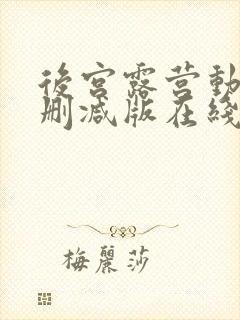 後宮露营動
删减版在綫
梅麗莎